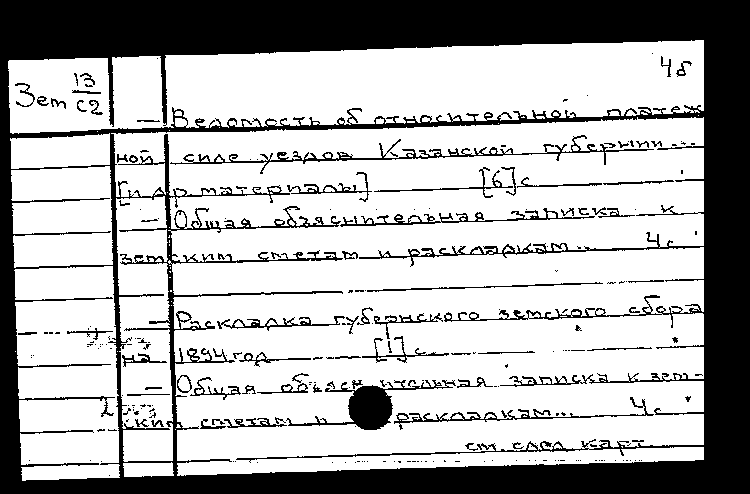 4б
Зет 13/С2
— Ведомость об относительной платеж
ной силе уездов Казанской губернии...
[и др материалы] [6] с
— Общая объяснительная записка к
земским сметам и раскладкам... 4с
— Раскладка губернского земского сбора
на 1894 год [1] с.
— Общая объяснительная записка к зем-
2 экз
ским сметам и раскладкам... 4с
см. след карт.